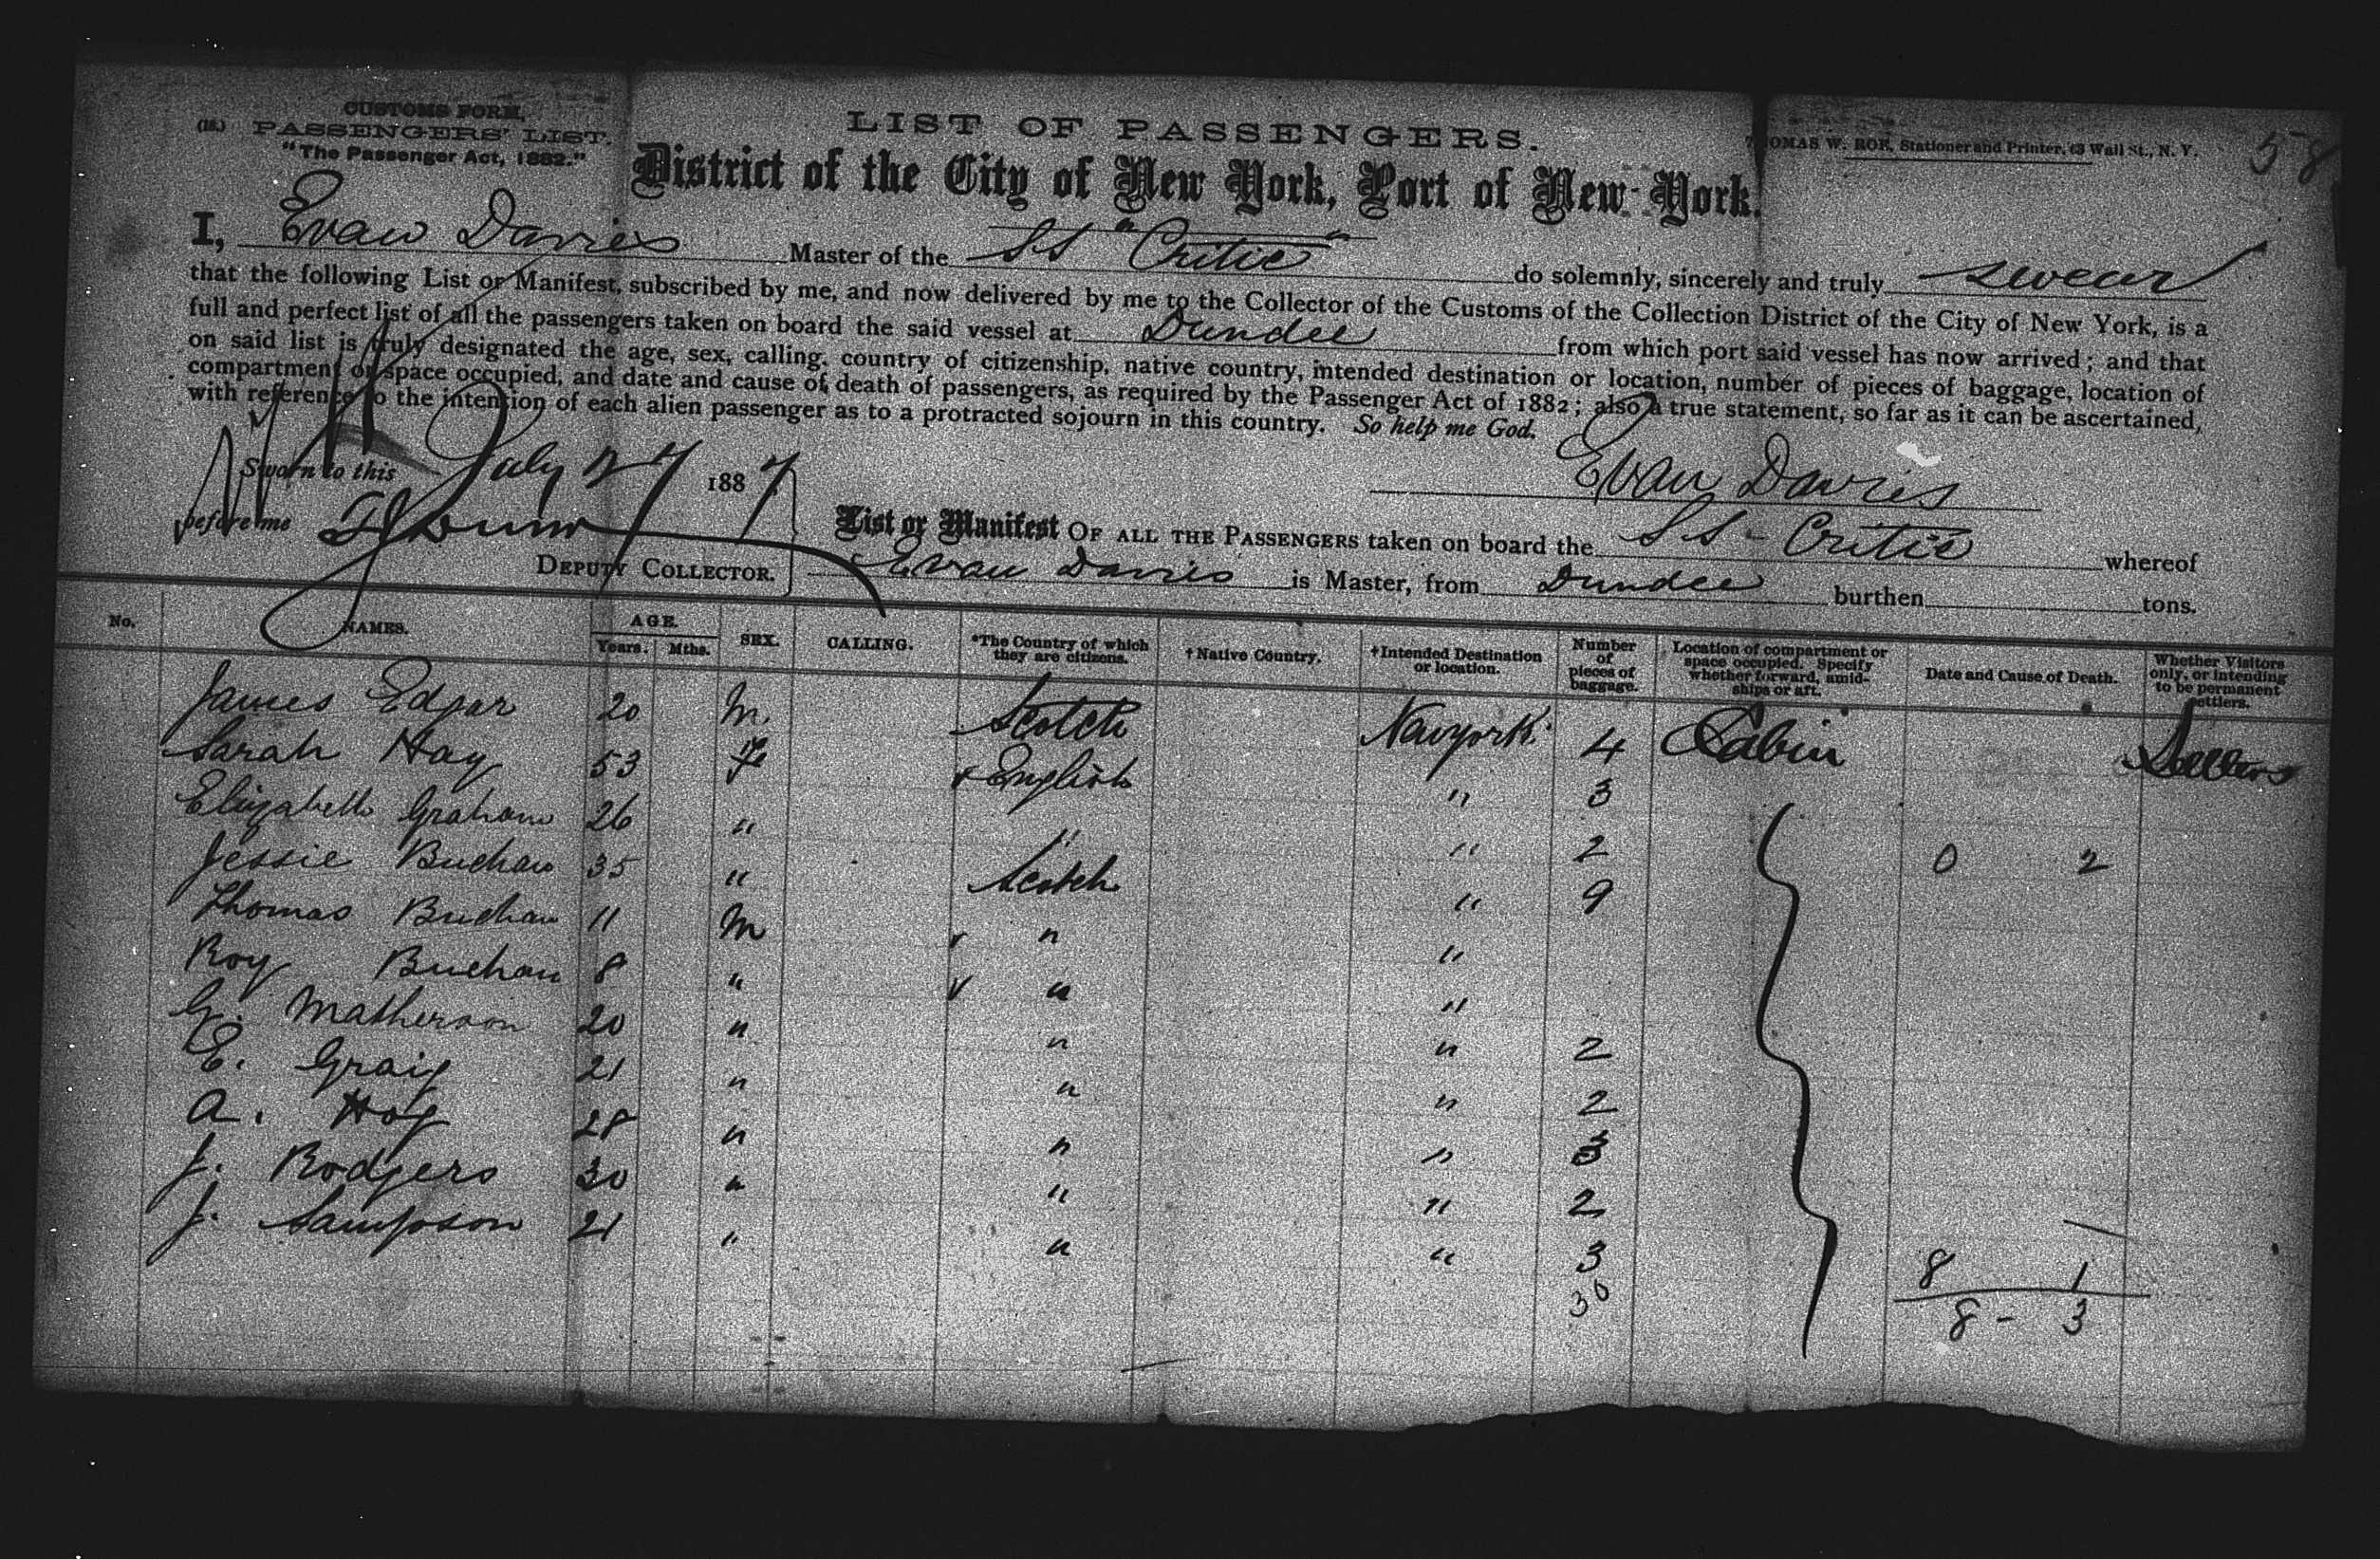 CUSTOMS FORM,
(18.) PASSENGERS' LIST.
"The Passenger Act, 1882."
LIST OF PASSENGERS.
THOMAS W. ROE, Stationer and Printer, 63 Wall St., N. Y.
58
District of the City of New York, Port of New York.
I, Evan Davies Master of the SS "Critic" do solemnly, sincerely and truly swear
that the following List or Manifest, subscribed by me, and now delivered by me to the Collector of the Customs of the Collection District of the City of New York, is a
full and perfect list of all the passengers taken on board the said vessel at Dundee from which port said vessel has now arrived; and that
on said list is truly designated the age, sex, calling, country of citizenship, native country, intended destination or location, number of pieces of baggage, location of
compartment or space occupied, and date and cause of death of passengers, as required by the Passenger Act of 1882; also a true statement, so far as it can be ascertained,
with reference to the intention of each alien passenger as to a protracted sojourn in this country. So help me God.
Sworn to this July 27 1887
Evan Davies
before me
DEPUTY COLLECTOR.
List or Manifest OF ALL THE PASSENGERS taken on board the SS - Critic whereof
Evan Davies is Master, from Dundee burthen tons.
No. NAMES. AGE. Years. Mths. SEX. CALLING. *The Country of which they are citizens. †Native Country. †Intended Destination or location. Number of pieces of baggage. Location of compartment or space occupied. Specify whether forward, amidships or aft. Date and Cause of Death. Whether Visitors only, or intending to be permanent settlers.
James Edgar 20 M. Scotch Newyork 4 Cabin
Sarah Hay 53 Fe English " 3
Elizabeth Graham 26 " " " 2 0 2
Jessie Buchan 35 " Scotch " 9
Thomas Buchan 11 M " "
Roy Buchan 8 " " "
G. Matherson 20 " " " 2
E. Graig 21 " " " 2
A. Hog 28 " " " 3
J. Rodgers 30 " " " 2
J. Sampson 21 " " " 3 8 1
30 8 - 3